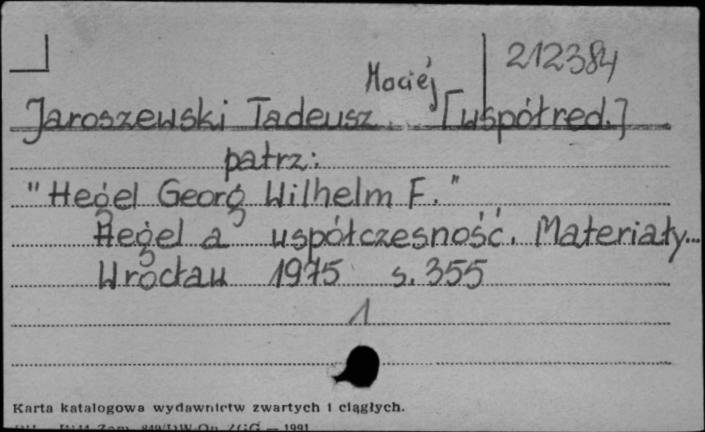 212384
Maciej
Jaroszewski Tadeusz. [współred.]
patrz:
"Hegel Georg Wilhelm F."
Hegel a współczesność. Materiały...
Wrocław 1975 s. 355
1
Karta katalogowa wydawnictw zwartych i ciągłych.
1991